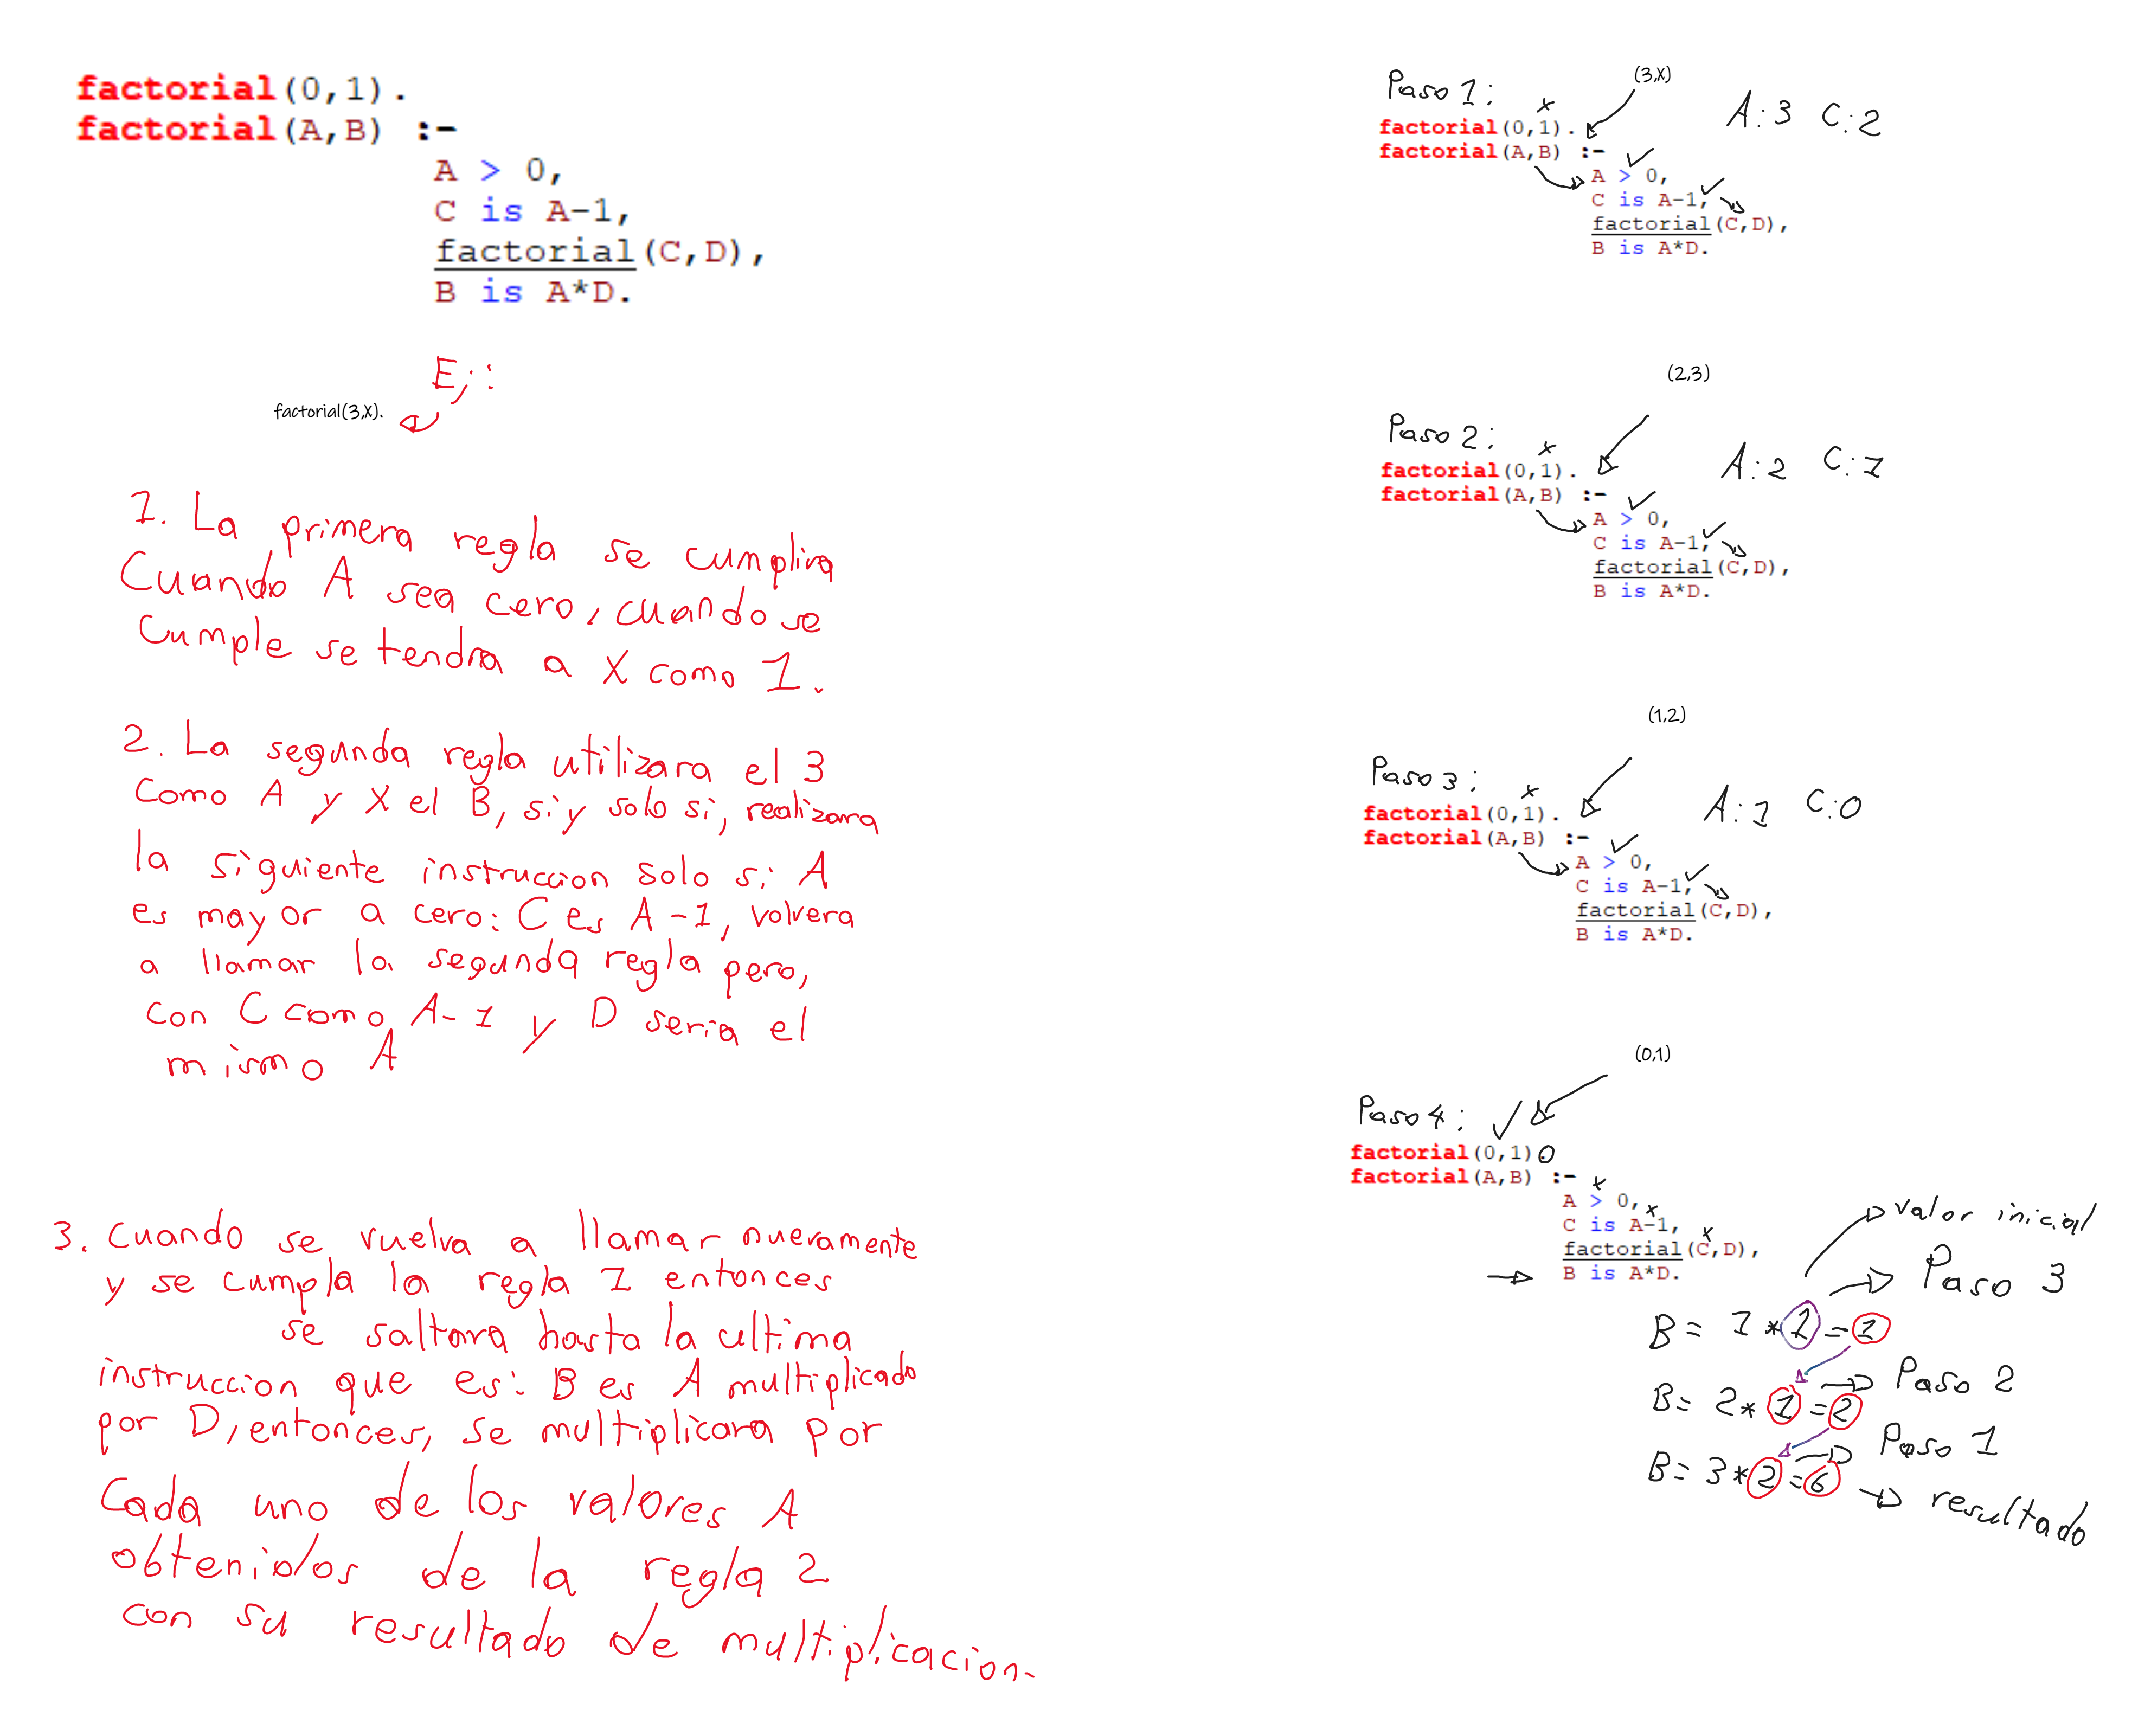 factorial(0,1).
factorial(A,B) :-
A > 0,
C is A-1,
factorial(C,D),
B is A*D.
Ej:
factorial(3,X).
1. La primera regla se cumplira
Cuando A sea cero, cuando se
Cumple se tendra a X como 1.
2. La segunda regla utilizara el 3
Como A y X el B, si y solo si, realizara
la siguiente instruccion solo si A
es mayor a cero: C es A-1, volvera
a llamar la segunda regla pero,
con C como A-1 y D seria el
mismo A
3. Cuando se vuelva a llamar nuevamente
y se cumpla la regla 1 entonces
se saltara hasta la ultima
instruccion que es: B es A multiplicado
por D, entonces, se multiplicara por
Cada uno de los valores A
obtenidos de la regla 2
con su resultado de multiplicacion.
Paso 1:
(3,X)
A:3 C:2
x
factorial(0,1).
factorial(A,B) :-
A > 0,
C is A-1,
factorial(C,D),
B is A*D.
(2,3)
Paso 2:
A:2 C:1
x
factorial(0,1).
factorial(A,B) :-
A > 0,
C is A-1,
factorial(C,D),
B is A*D.
(1,2)
Paso 3:
A:1 C:0
x
factorial(0,1).
factorial(A,B) :-
A > 0,
C is A-1,
factorial(C,D),
B is A*D.
(0,1)
Paso 4:
factorial(0,1).
factorial(A,B) :- x
A > 0, x
C is A-1, x
factorial(C,D),
B is A*D.
valor inicial
Paso 3
B = 1 * 1 = 1
Paso 2
B = 2 * 1 = 2
Paso 1
B = 3 * 2 = 6
resultado